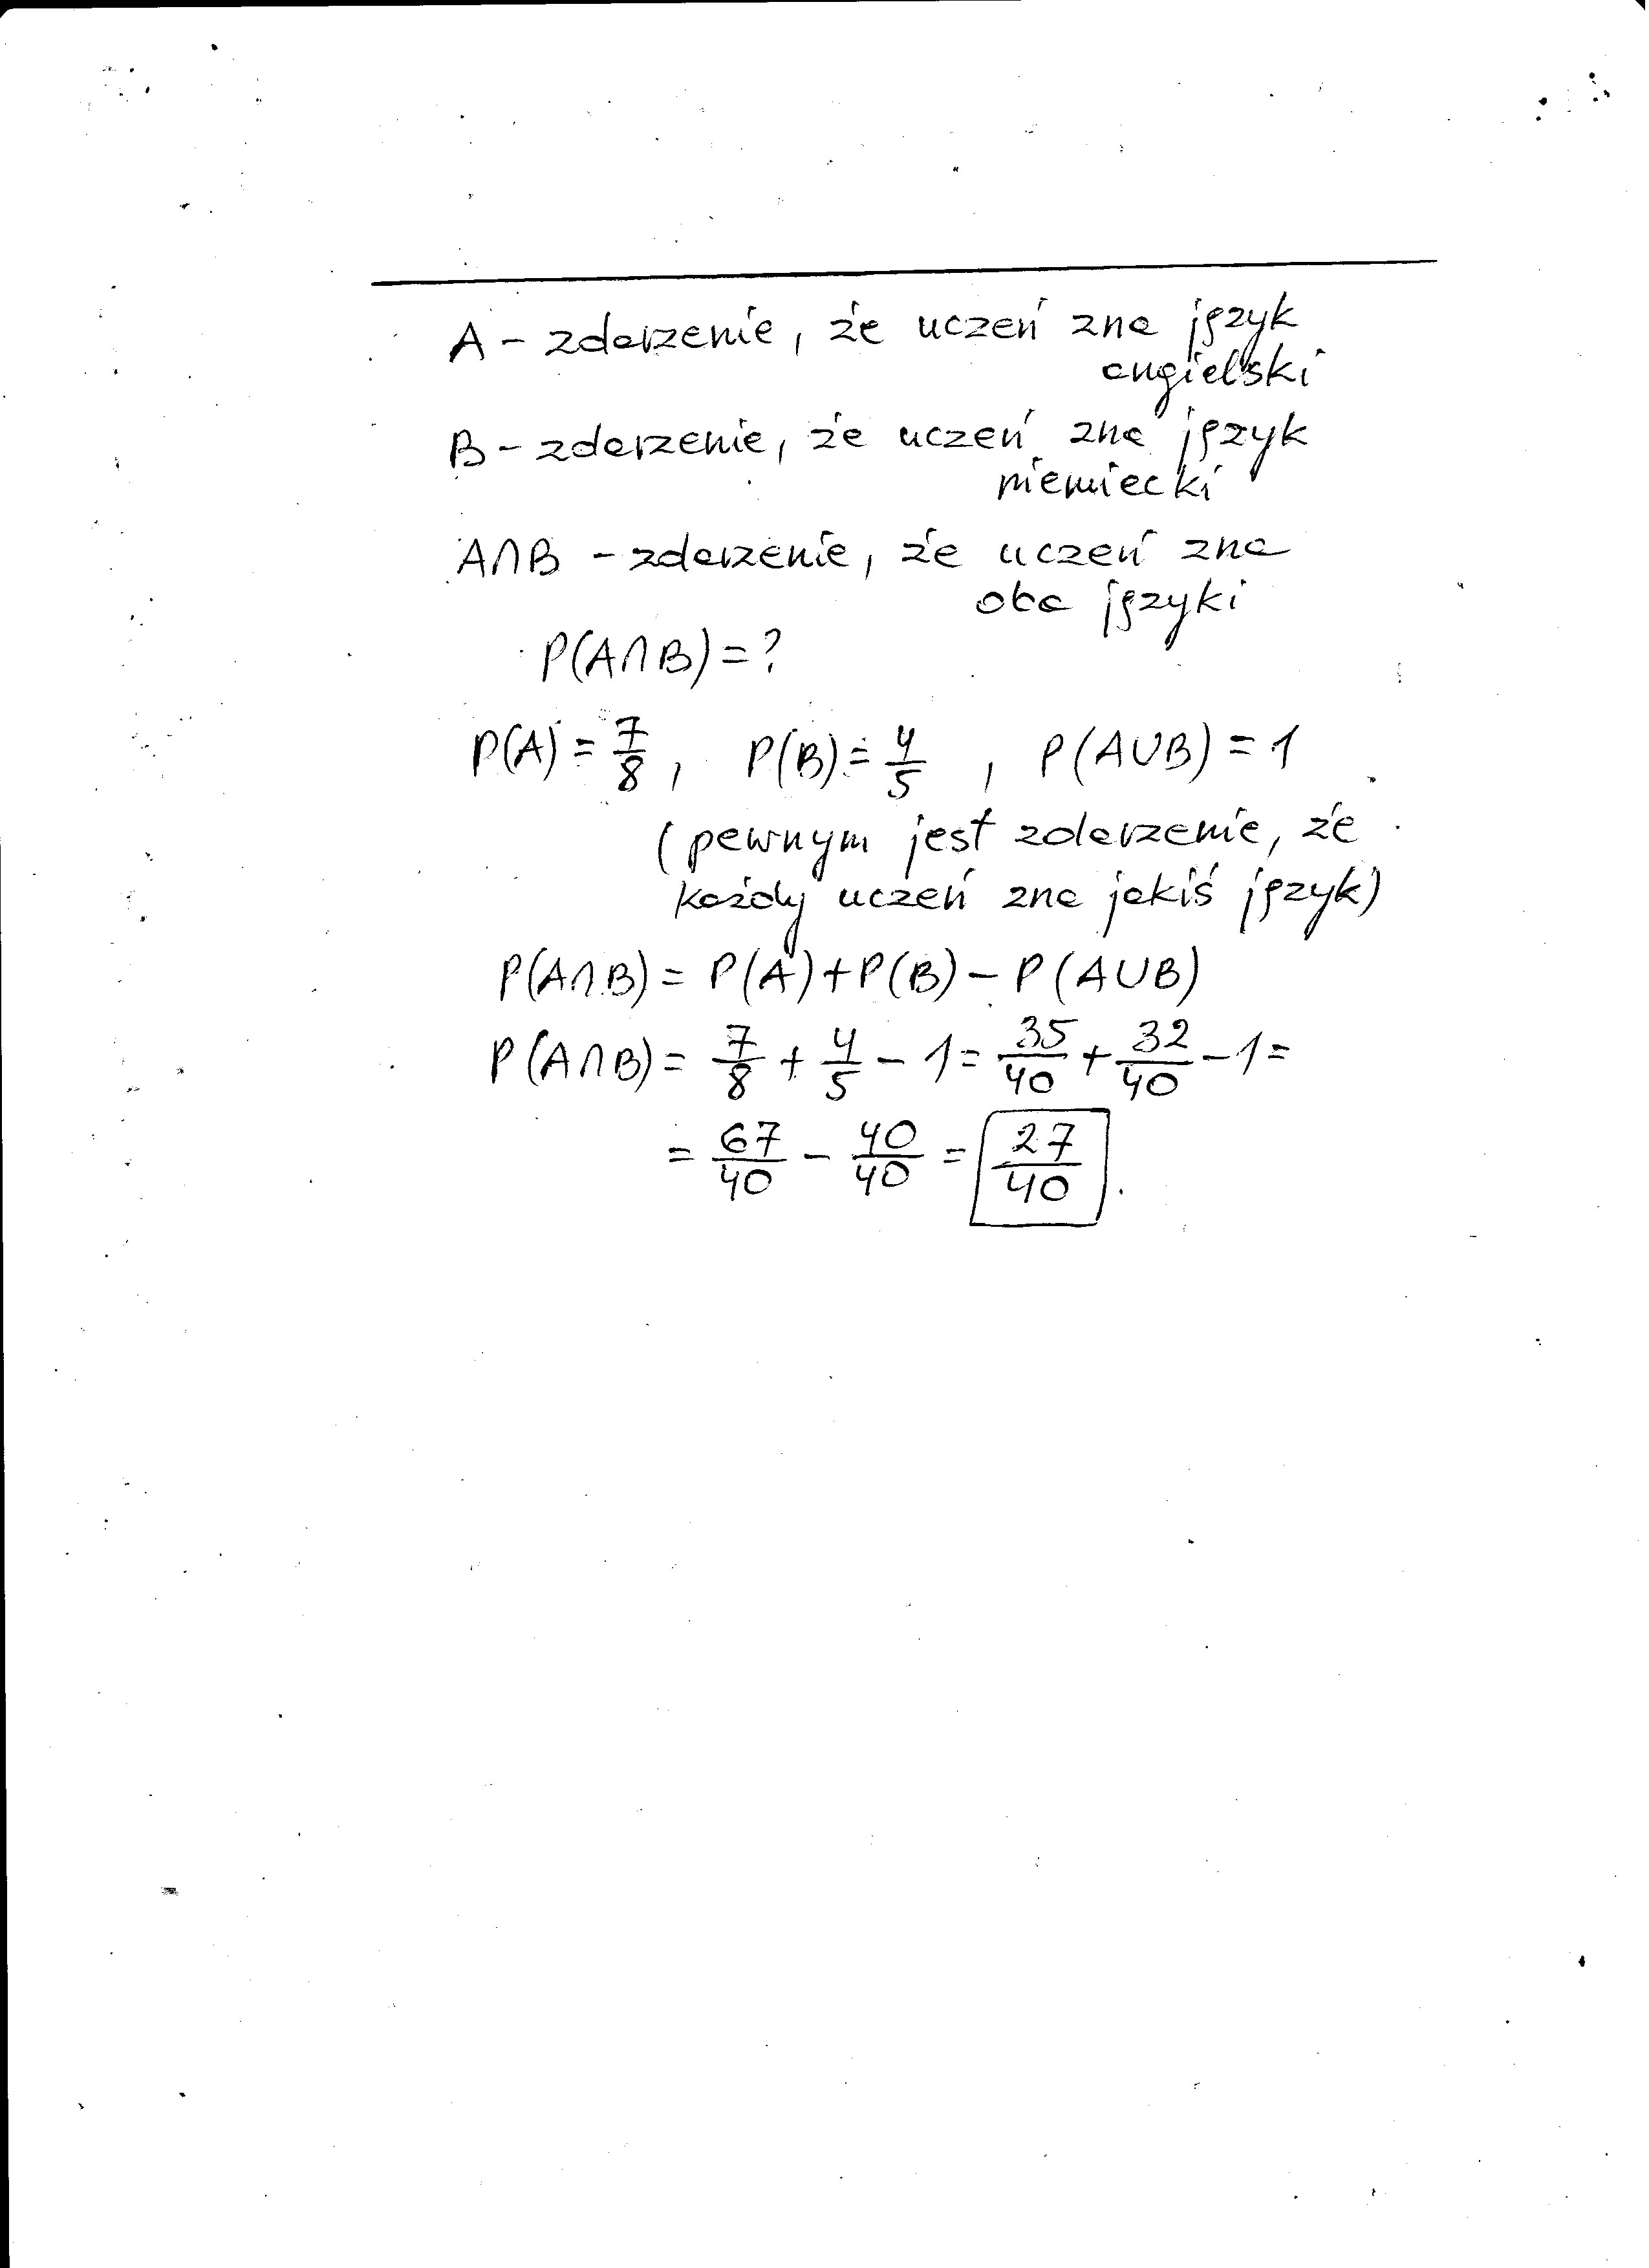 A - zdarzenie, że uczeń zna język
angielski
B - zdarzenie, że uczeń zna język
niemiecki
A∩B - zdarzenie, że uczeń zna
oba języki
P(A∩B) = ?
P(A) = 7/8, P(B) = 4/5, P(A∪B) = 1
(pewnym jest zdarzenie, że
każdy uczeń zna jakiś język)
P(A∩B) = P(A) + P(B) - P(A∪B)
P(A∩B) = 7/8 + 4/5 - 1 = 35/40 + 32/40 - 1 =
= 67/40 - 40/40 = 27/40.